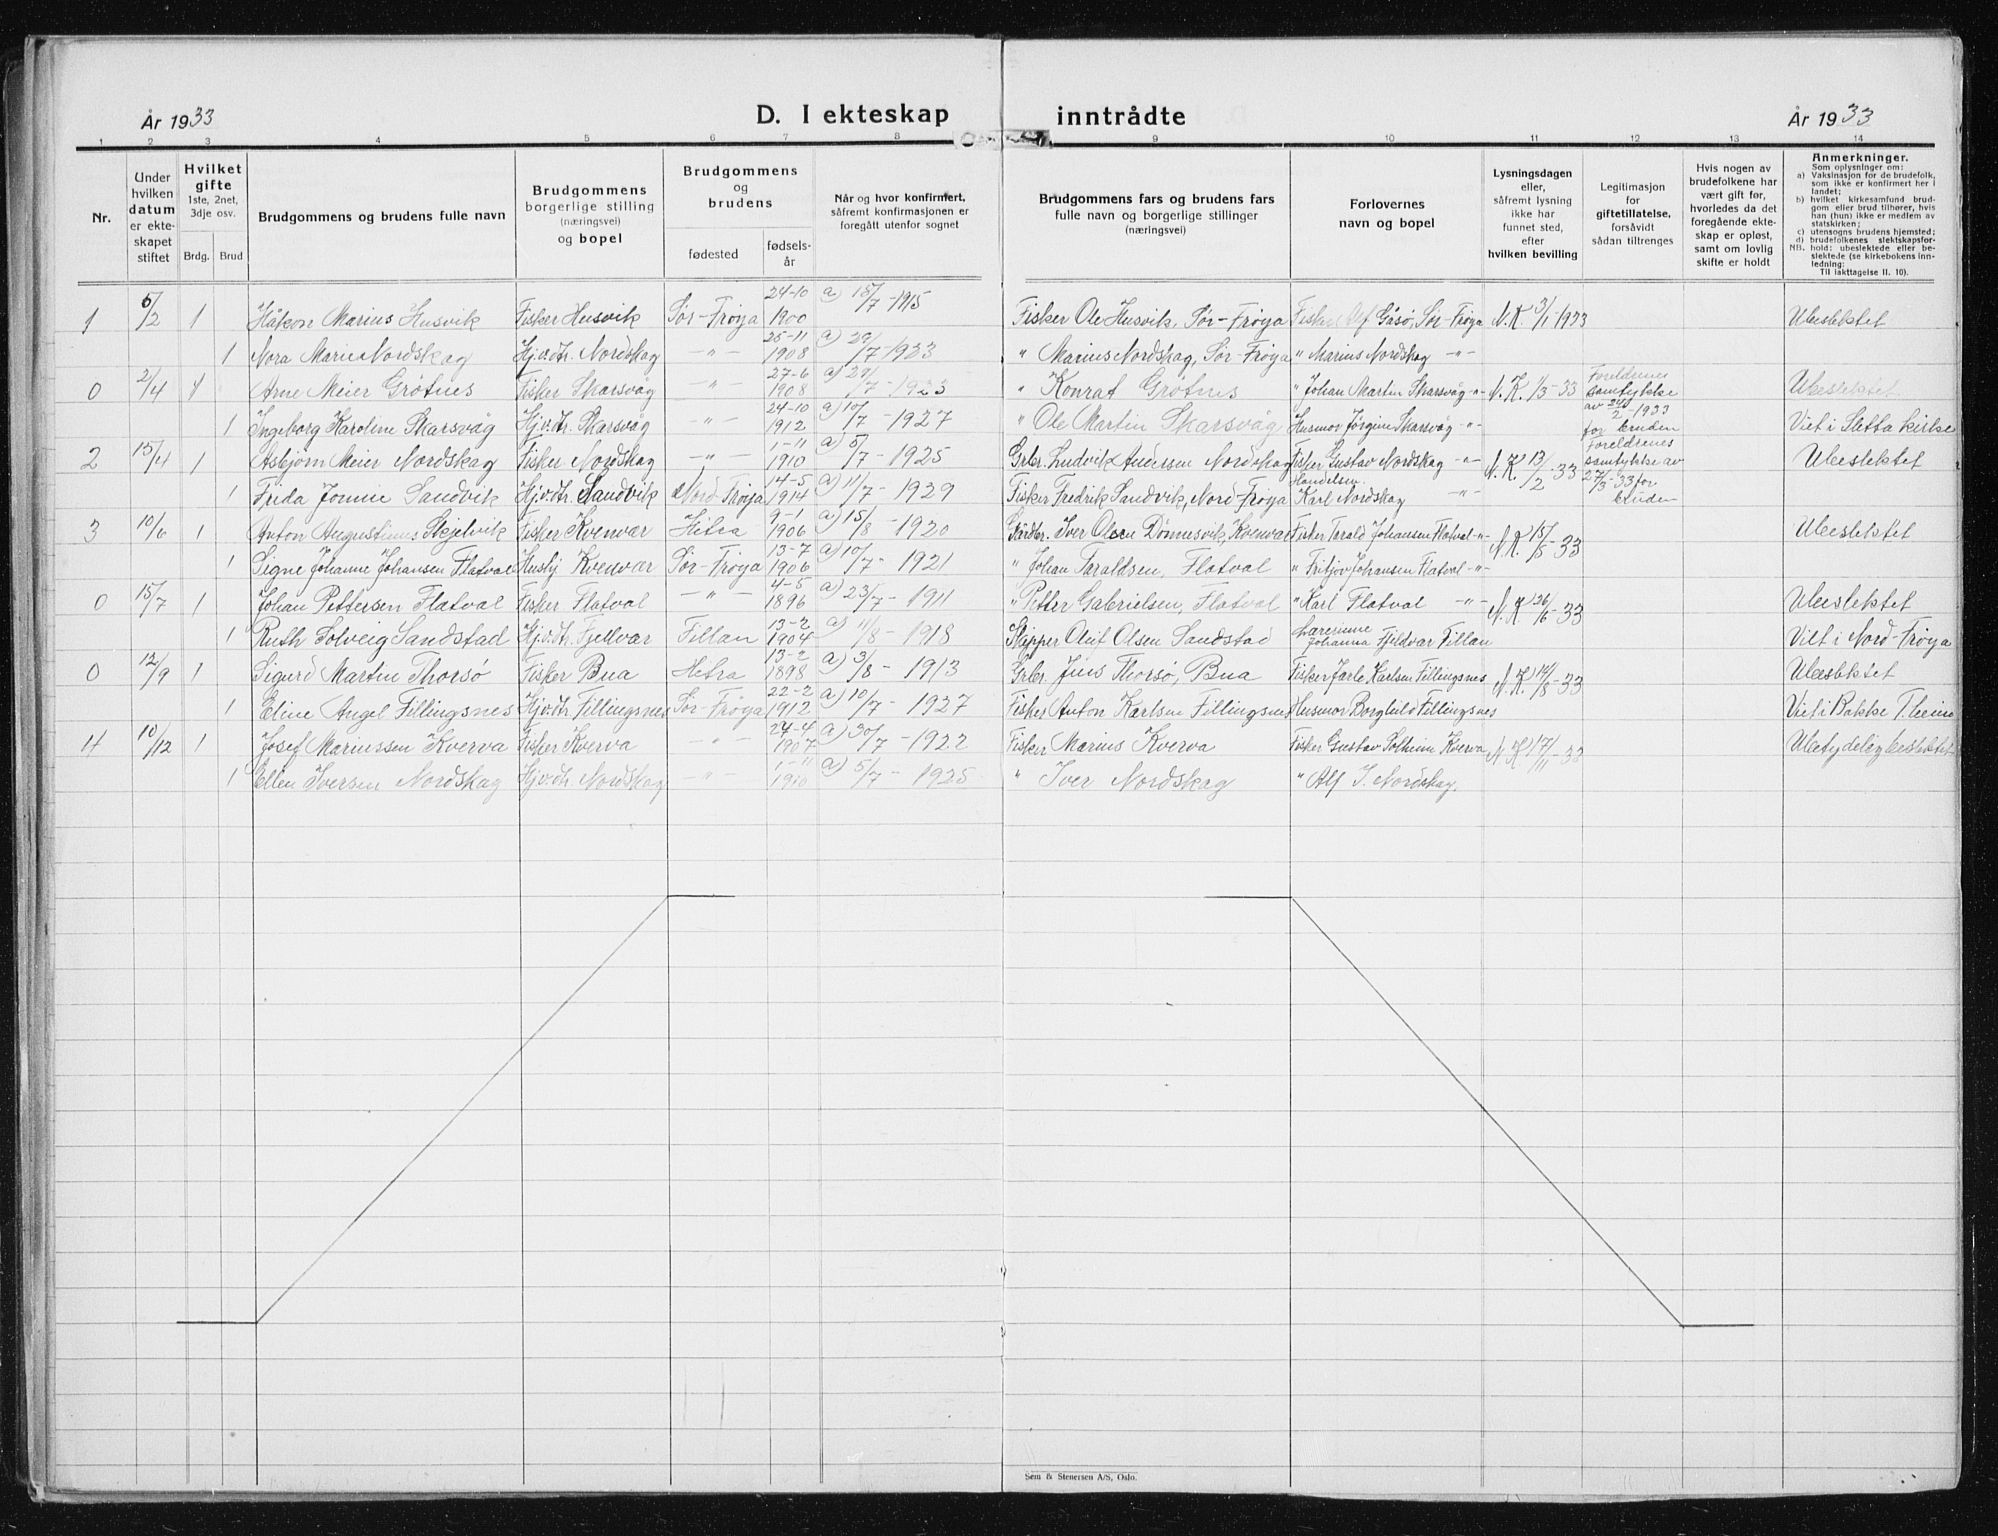 År 1933
D. I ekteskap inntrådte
År 1933
1 2 3 4 5 6 7 8 9 10 11 12 13 14
Nr.
Under hvilken datum er ekte-skapet stiftet
Hvilket gifte 1ste, 2net, 3dje osv.
Brdg. Brud
Brudgommens og brudens fulle navn
Brudgommens borgerlige stilling (næringsvei) og bopel
Brudgommens og brudens
fødested
fødsels-år
Når og hvor konfirmert, såfremt konfirmasjonen er foregått utenfor sognet
Brudgommens fars og brudens fars fulle navn og borgerlige stillinger (næringsvei)
Forlovernes navn og bopel
Lysningsdagen eller, såfremt lysning ikke har funnet sted, efter hvilken bevilling
Legitimasjon for giftetillatelse, forsåvidt sådan tiltrenges
Hvis nogen av brudefolkene har vært gift før, hvorledes da det foregående ekte-skap er opløst, samt om lovlig skifte er holdt
Anmerkninger.
Som oplysninger om:
a) Vaksinasjon for de brudefolk, som ikke er konfirmert her i landet;
b) hvilket kirkesamfund brud-gom eller brud tilhører, hvis han (hun) ikke er medlem av statskirken;
c) utensogns brudens hjemsted;
d) brudefolkenes slektskapsfor-hold: ubeslektede eller be-slektede (se kirkebokens inn-ledning:
NB.
Til iakttagelse II. 10).
1 5/2 1 Håkon Marius Husvik Fisker Husvik Sør-Frøya 24-10 1900 a) 18/7-1915 Fisker Ole Husvik, Sør-Frøya Fisker Alf Gåsø, Sør-Frøya N.K. 3/1 1933 Ubeslektet
1 Nora Marie Nordskag Hjv.dtr. Nordskag -"- 25-11 1908 a) 29/7-1923 " Marius Nordskag, Sør-Frøya " Marius Nordskag -"-
0 2/4 1 Arne Meier Grøtnes Fisker Skarsvåg -"- 27-6 1908 a) 29/7-1923 " Konrat Grøtnes " Johan Martin Skarsvåg -"- N.K. 1/3-33 Foreldrenes samtykke av 24/2-1933 for bruden Ubeslektet
1 Ingeborg Karoline Skarsvåg Hjv.dtr. Skarsvåg -"- 24-10 1912 a) 10/7-1927 " Ole Martin Skarsvåg Husmor Jørgine Skarsvåg -"- Viet i Sletta kirke
2 15/4 1 Asbjørn Meier Nordskag Fisker Nordskag -"- 1-11 1910 a) 5/7-1925 Grbr. Ludvik Andersen Nordskag Fisker Gustav Nordskag -"- N.K. 13/2-33 Foreldrenes samtykke av 27/3-33 for bruden Ubeslektet
1 Frida Jonnie Sandvik Hjv.dtr. Sandvik Nord-Frøya 14-5 1914 a) 11/7-1929 Fisker Fredrik Sandvik, Nord-Frøya Handelsm. Karl Nordskag -"-
3 10/6 1 Anton Augustinus Skjelvik Fisker Kvenvær Hitra 9-1 1906 a) 15/8-1920 Gårdbr. Iver Olsen Dønnesvik, Kvenvær Fisker Tarald Johansen Flatval -"- N.K. 15/5-33 Ubeslektet
1 Signe Johanne Johansen Flatval Hushj Kvenvær Sør-Frøya 13-7 1906 a) 10/7-1921 " Johan Taraldsen, Flatval " Fritjov Johansen Flatval -"-
0 15/7 1 Johan Pettersen Flatval Fisker Flatval -"- 4-5 1896 a) 23/7-1911 " Petter Gabrielsen, Flatval " Karl Flatval -"- N.K. 26/6-33 Ubeslektet
1 Ruth Solveig Sandstad Hjv.dtr. Fjellvær Fillan 13-2 1904 a) 11/8-1918 Skipper Oluf Olsen Sandstad Lærerinne Johanna Fjeldvær Fillan Viet i Nord-Frøya
0 12/9 1 Sigurd Martin Thorsø Fisker Bua Hitra 13-2 1898 a) 3/8-1913 Grbr. Jens Thorsø, Bua Fisker Jarle Karlsen Fillingsnes N.K. 14/8-33 Ubeslektet
1 Eline Angel Fillingsnes Hjv.dtr. Fillingsnes Sør-Frøya 22-2 1912 a) 10/7-1927 Fisker Anton Karlsen Fillingsnes Husmor Borghild Fillingsnes Viet i Bakke T.heim
4 10/12 1 Josef Mariussen Kverva Fisker Kverva -"- 24-4 1907 a) 30/7-1922 Fisker Marius Kverva Fisker Gustav Solheim Kverva N.K. 17/11-33 Ubetydelig beslektet
1 Ellen Iversen Nordskag Hjv.dtr. Nordskag -"- 1-11 1910 a) 5/7-1925 " Iver Nordskag " Alf I. Nordskag.
Sem & Stenersen A/S, Oslo.